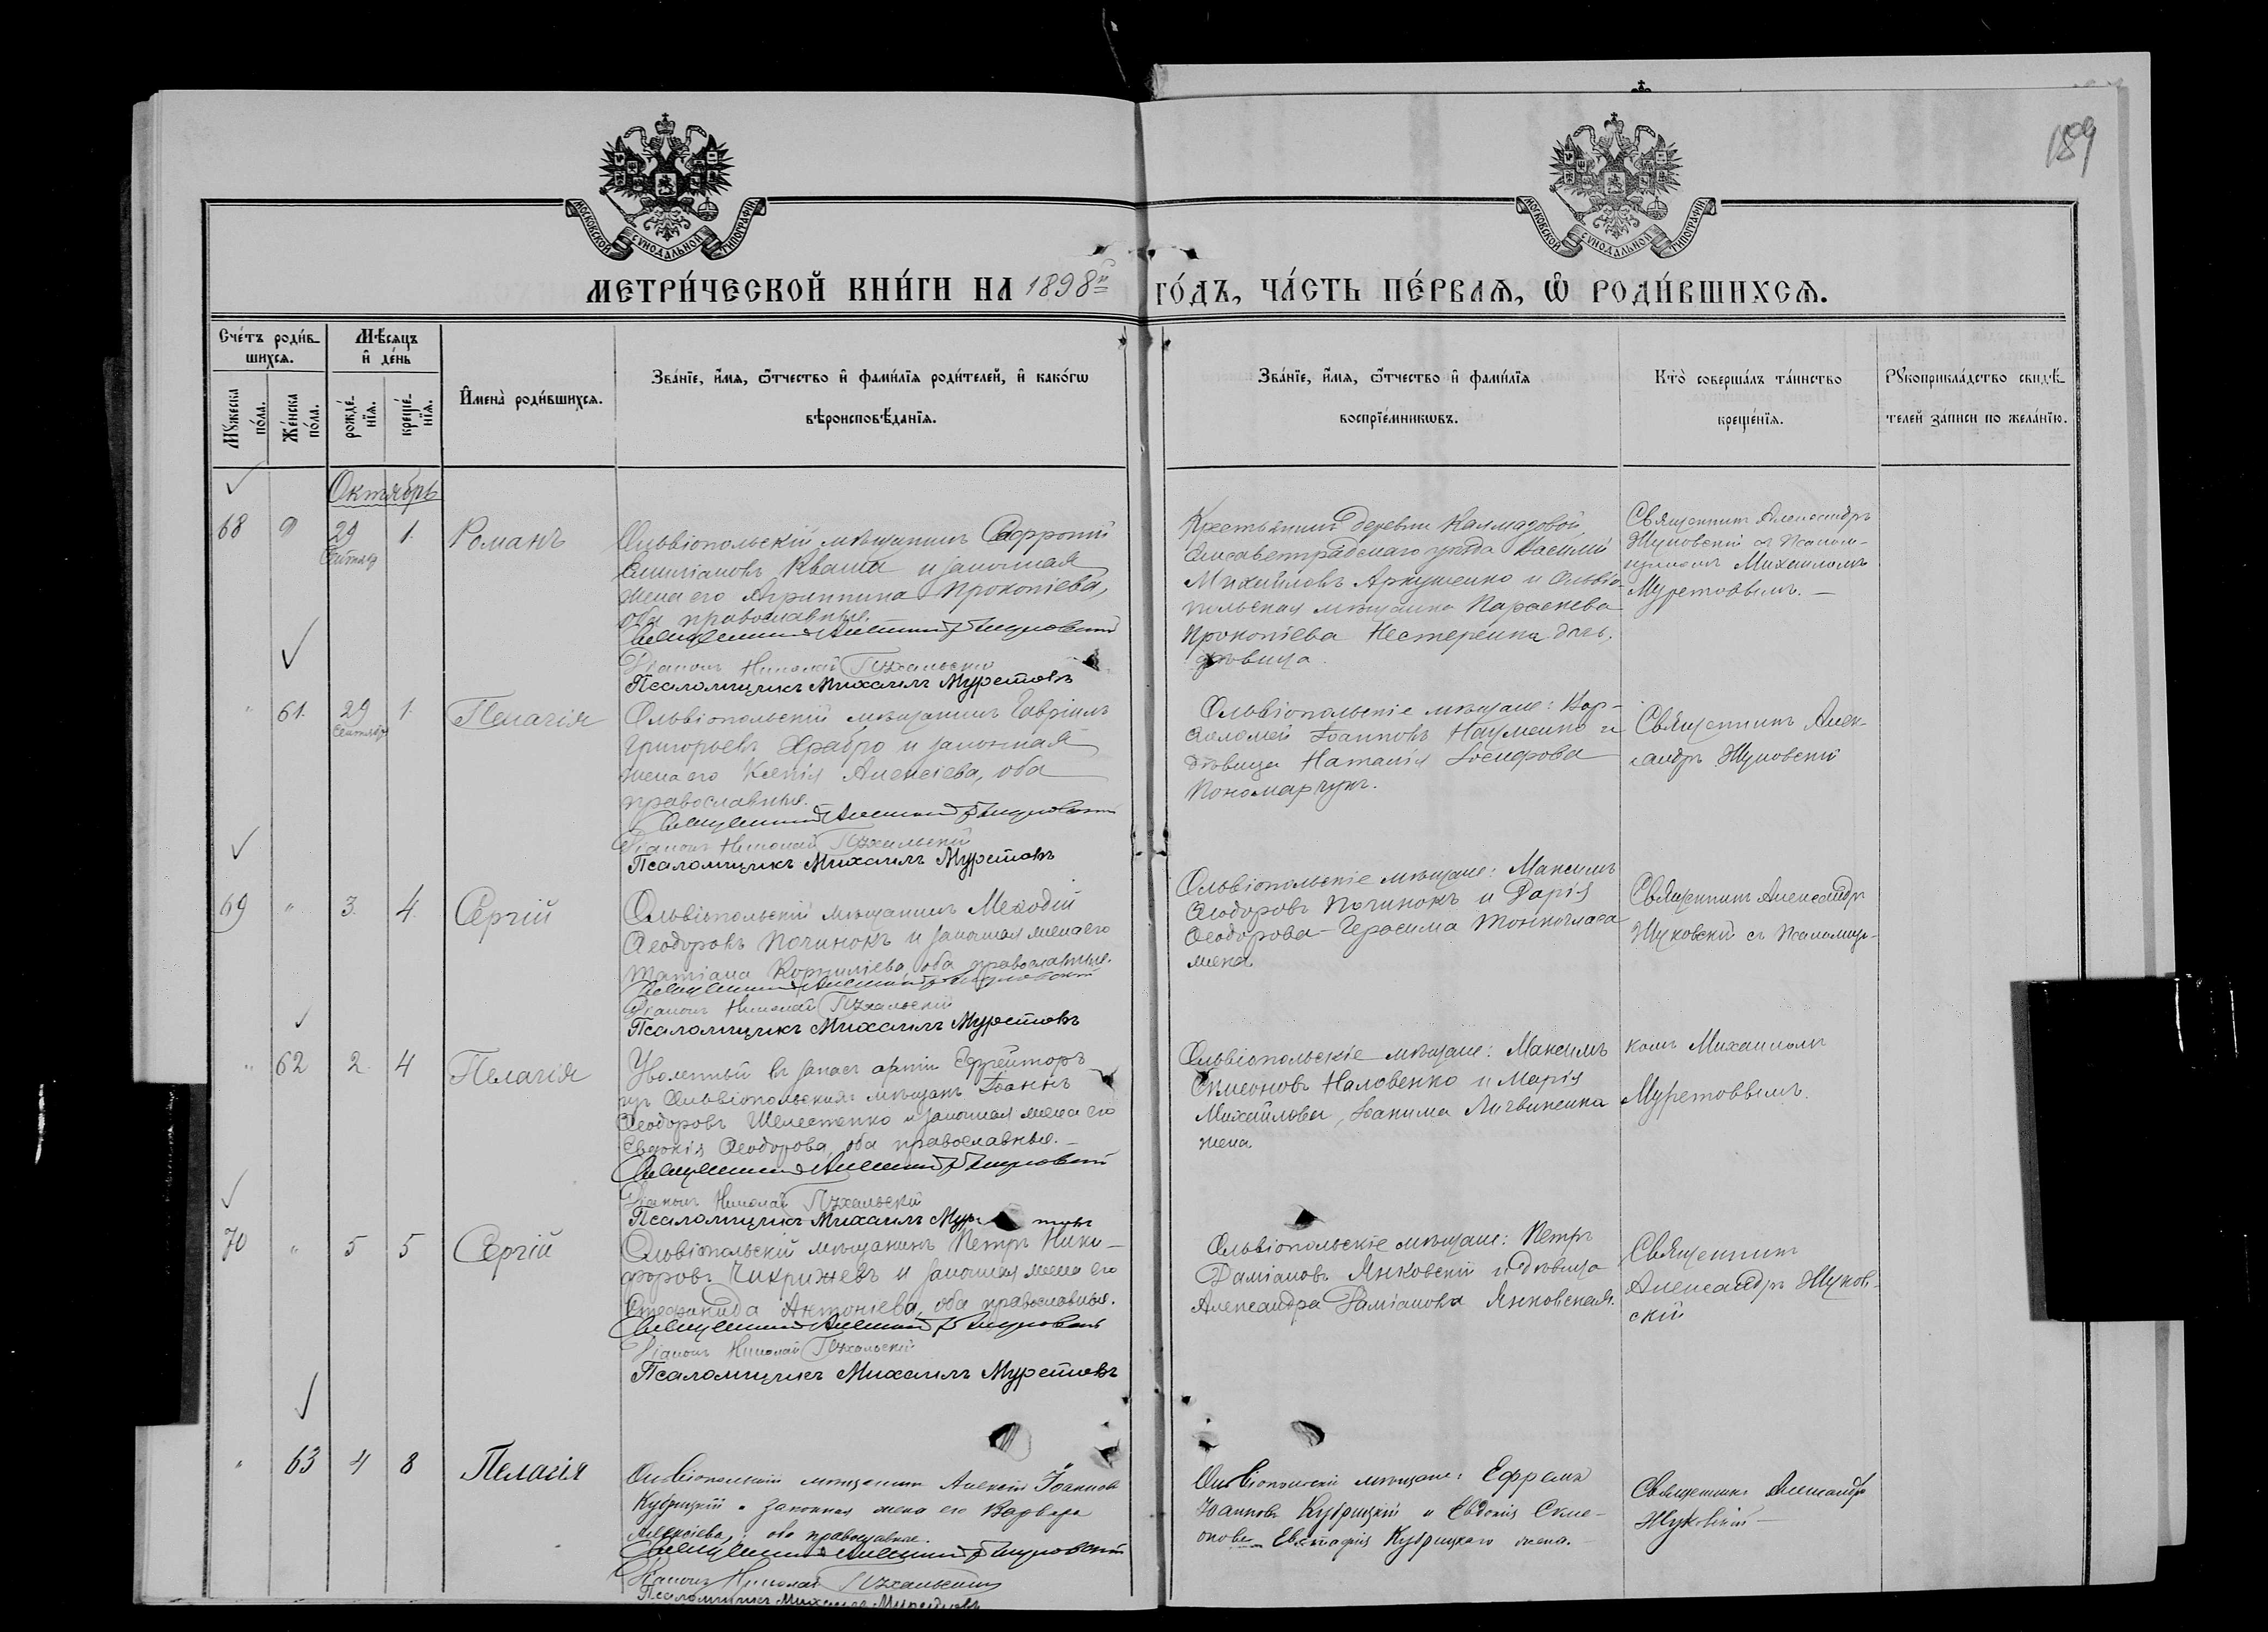 189
МОСКОВСКОЙ СѴНОДАЛЬНОЙ ТИПОГРАФІИ
МОСКОВСКОЙ СѴНОДАЛЬНОЙ ТИПОГРАФІИ
МЕТРИ́ЧЕСКОЙ КНИ́ГИ НА 1898й ГО́ДЪ, ЧА́СТЬ ПЕ́РВАЯ, Ѡ РОДИ́ВШИХСЯ.
Сче́тъ роди́в-
шихся.
Мѣ́сяцъ
и҆ де́нь
Мꙋ́жеска
по́ла.
Же́нска
по́ла.
рожде́-
нїя.
креще́-
нїя.
И҆мена̀ роди́вшихся.
Зва́нїе, и҆́мя, ѻ҆́тчество и҆ фами́лїя роди́телей, и҆ како́гѡ
вѣроисповѣ́данїя.
Зва́нїе, и҆́мя, ѻ҆́тчество и҆ фами́лїя
воспрїе́мникѡвъ.
Кто̀ соверша́лъ та́инство
креще́нїя.
Рꙋкоприкла́дство свидѣ́-
телей за́писи по жела́нїю.
Октябрь
68 " 29 1. Романъ
Сентяб
Ольвіопольскій мѣщанинъ Софроній
Емиліановъ Кваша и законная
жена его Агриппина Прокопіева,
оба православные.
Священникъ Александръ Жуковскій
Діаконъ Николай Пухальскій
Псаломщикъ Михаилъ Муретовъ
Крестьянинъ деревни
Елисаветградскаго уѣзда Василій
Михайловъ Аркушенко и Ольвіо-
польская мѣщанка Параскева
Прокопіева Нестеренка дочь,
дѣвица.
Священникъ Александръ
Жуковскій съ Псалом-
щикомъ Михаиломъ
Муретовымъ. —
" 61. 29 1. Пелагія
Сентябр
Ольвіопольскій мѣщанинъ Гавріилъ
Григорьевъ Храбро и законная
жена его Ксенія Алексіева, оба
православные.
Священникъ Александръ Жуковскій
Діаконъ Николай Пухальскій
Псаломщикъ Михаилъ Муретовъ
Ольвіопольскіе мѣщане: Вар-
ѳоломей Іоанновъ Науменко и
дѣвица Наталія Іосифова
Пономарчукъ.
Священникъ Алек-
сандръ Жуковскій
69 " 3. 4. Сергій
Ольвіопольскій мѣщанинъ Меѳодій
Ѳеодоровъ Починокъ и законная жена его
Татіана Корниліева, оба православные.
Священникъ Александръ Жуковскій
Діаконъ Николай Пухальскій
Псаломщикъ Михаилъ Муретовъ
Ольвіопольскіе мѣщане: Максимъ
Ѳеодоровъ Починокъ и Дарія
Ѳеодорова Герасима Тонкогласа
жена
Священникъ Александръ
Жуковскій съ Псаломщи-
" 62 2. 4 Пелагія
Уволенный въ запасъ арміи Ефрейторъ
изъ Ольвіопольскихъ мѣщанъ Іоаннъ
Ѳеодоровъ Шелестенко и законная жена его
Евдокія Ѳеодорова, оба православные. —
Священникъ Александръ Жуковскій
Діаконъ Николай Пухальскій
Псаломщикъ Михаилъ Мур товъ
Ольвіопольскіе мѣщане: Максимъ
Симеоновъ Наловенко и Марія
Михайлова, Іоакима Литвиненка
жена.
комъ Михаиломъ
Муретовымъ.
70 " 5 5 Сергій
Ольвіопольскій мѣщанинъ Петръ Ники-
форовъ Чикрижевъ и законная жена его
Стефанида Антоніева, оба православные.
Священникъ Александръ Жуковскій
Діаконъ Николай Пухальскій
Псаломщикъ Михаилъ Муретовъ
Ольвіопольскіе мѣщане: Петръ
Даміановъ Янковскій и дѣвица
Александра Даміанова Янковская.
Священникъ
Александръ Жуков-
скій
" 63 4 8 Пелагія
Ольвіопольскій мѣщанинъ Алексій Іоанновъ
Кубрицкій и законная жена его Варвара
Алексіева, оба православные.
Священникъ Александръ Жуковскій
Діаконъ Николай Пухальскій
Псаломщикъ Михаилъ Муретовъ
Ольвіопольскіе мѣщане: Ефремъ
Іоанновъ Кубрицкій и Евдокія Симе-
онова Евстафія Кубрицкаго жена. —
Священникъ Александръ
Жуковскій —